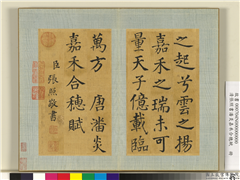 之起兮雲之揚
嘉禾之瑞未可
量天子億載臨
萬方 唐潘炎
嘉禾合穗賦
臣張照敬書